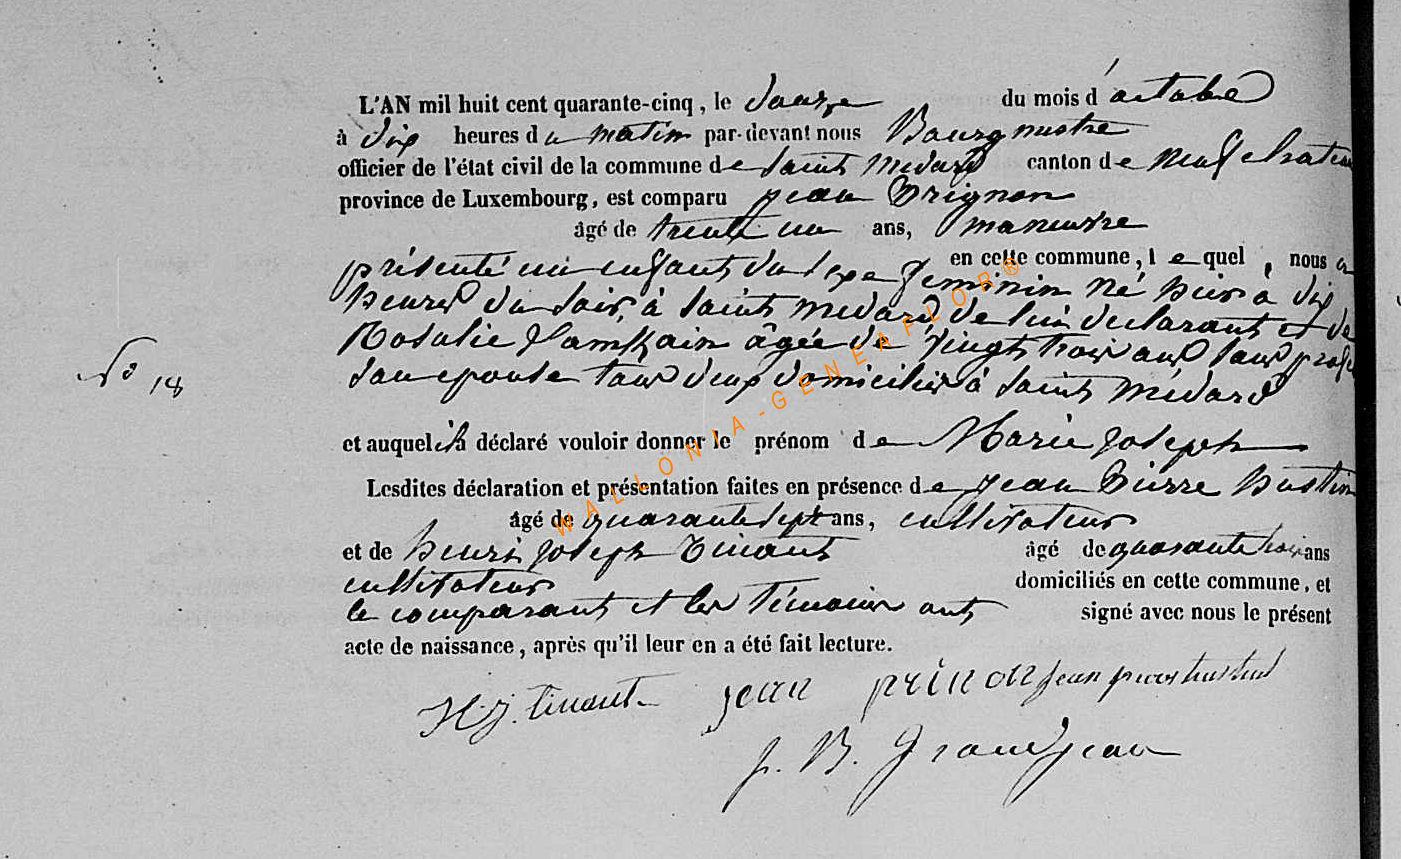 L'AN mil huit cent quarante-cinq, le douze du mois d'octobre
à dix heures du matin par-devant nous Bourgmestre
officier de l'état civil de la commune de Saint Medard canton de Neufchateau
province de Luxembourg, est comparu jean Prignon
âgé de trente un ans, manuvre
en cette commune, lequel, nous a
présenté un enfant du sexe feminin né hier a dix
heures du soir, à Saint Medard, de lui declarant et de
Rosalie âgée de vingt trois ans sans prof
son epouse tous deux domiciliés à Saint Médard
N° 18
et auquel il a déclaré vouloir donner le prénom de Marie joseph
Lesdites déclaration et présentation faites en présence de jean Pierre Hustin
âgé de quarante sept ans, cultivateur
et de henri joseph Tinant âgé de quarante trois ans
cultivateur domiciliés en cette commune, et
le comparant et les témoins ont signé avec nous le présent
acte de naissance, après qu'il leur en a été fait lecture.
H. j. tinant jean prinon jean
J. B. Grandjean
WALLONIA-GENEAFLOR®